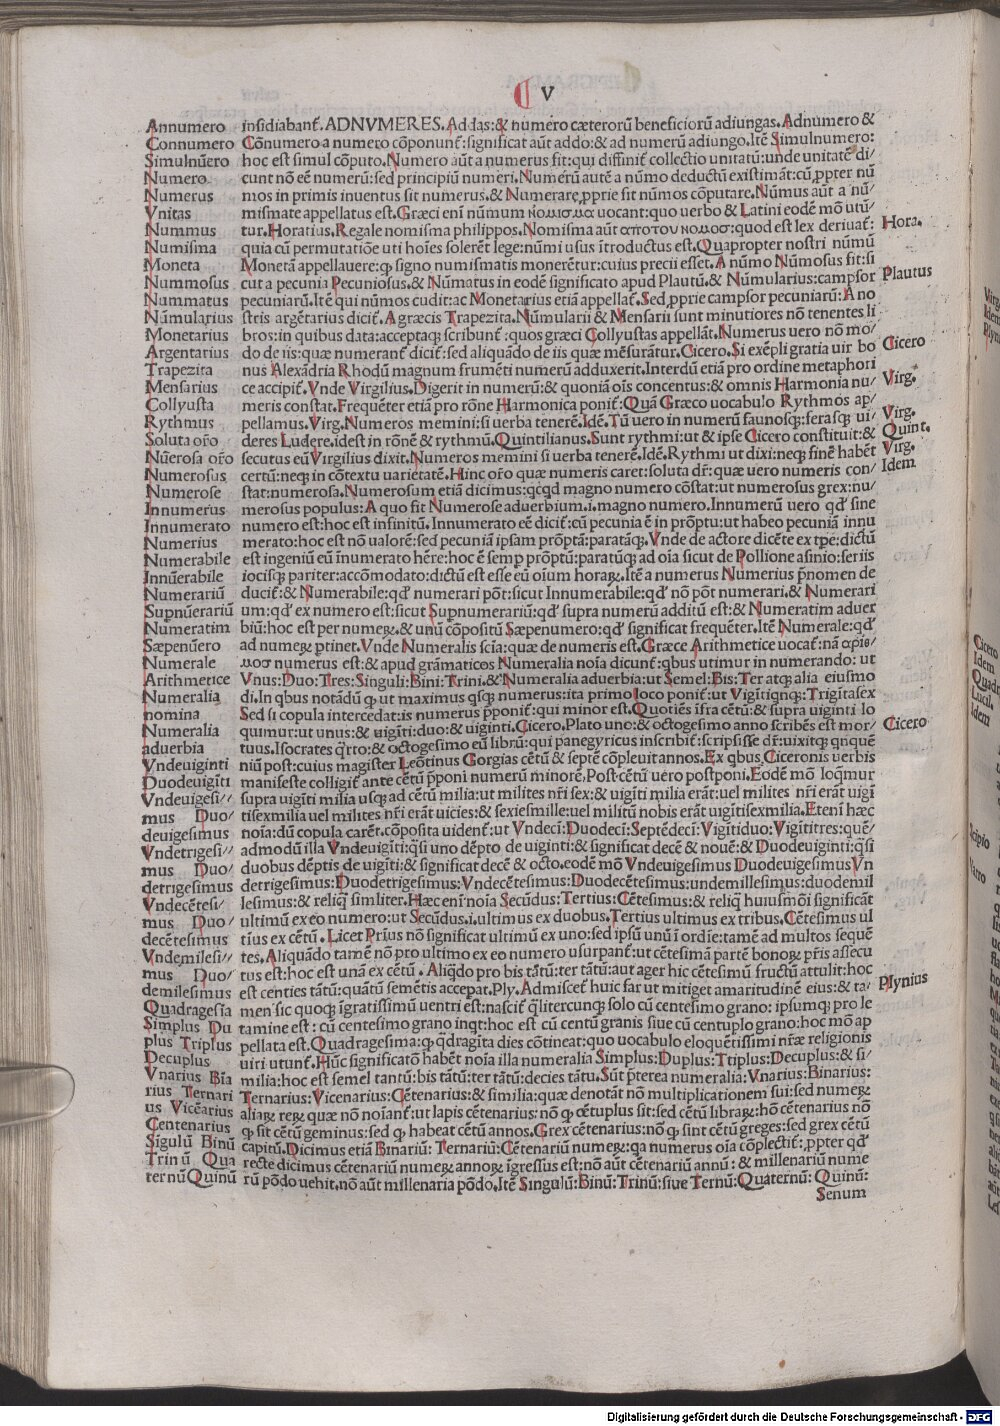 V
Annumero
Connumero
Simulnūero
Numero
Numerus
Vnitas
Nummus
Numisma
Moneta
Nummosus
Nummatus
Nūmularius
Monetarius
Argentarius
Trapezita
Mensarius
Collyusta
Rythmus
Soluta oro̅
Nūerosa oro̅
Numerosus
Numerose
Innumerus
Innumerato
Numerius
Numerabile
Innūerabile
Numerariū
Supnūerariū
Numeratim
Sæpenūero
Numerale
Arithmetice
Numeralia
nomina
Numeralia
aduerbia
Vndeuiginti
Duodeuigīti
Vndeuigesi//
mus Duo/
deuigesimus
Vndetrigesi//
mus Duo/
detrigesimus
Vndecētesi/
mus Duo/
decētesimus
Vndemilesi//
mus Duo/
demilesimus
Quadragesīa
Simplus Du
plus Triplus
Decuplus
Vnarius Bīa
rius Ternari
us Vicēarius
Centenarius
Sigulū Binū
Trinū Qua
ternū Quinū
insidiabant᷑. ADNVMERES. Addas: & numero cæterorū beneficiorū adiungas. Adnumero &
Cōnumero a numero cōponunt᷑: significat aūt addo: & ad numerū adiungo. Itē Simulnumero:
hoc est simul cōputo. Numero aūt a numerus fit: qui diffinit᷑ collectio unitatū: unde unitatē di/
cunt nō eē numerū: sed principiū numeri. Numerū autē a nūmo deductū existimāt: cū ꝓpter nū
mos in primis inuentus sit numerus. & Numerare ꝓprie sit nūmos cōputare. Nūmus aūt a nū/
mismate appellatus est. Græci enī nūmum νομισμα uocant: quo uerbo & Latini eodē mō utū/
tur. Horatius. Regale nomisma philippos. Nomisma aūt αποτου νομοσ: quod est lex deriuat᷑:
quia cū permutatiōe uti hoīes solerēt lege: nūmi usus ītroductus est. Quapropter nostri nūmū
Monetā appellauere: ꝙ signo numismatis monerētur: cuius precii esset. A nūmo Nūmosus fit: si
cut a pecunia Pecuniosus. & Nūmatus in eodē significato apud Plautū. & Nūmularius: campsor
pecuniarū. Itē qui nūmos cudit: ac Monetarius etiā appellat᷑. Sed ꝓprie campsor pecuniarū: A no
stris argētarius dicit᷑. A græcis Trapezita. Nūmularii & Mensarii sunt minutiores nō tenentes li
bros: in quibus data: acceptaq; scribunt᷑: quos græci Collyustas appellāt. Numerus uero nō mo/
do de iis: quæ numerant᷑ dicit᷑: sed aliquādo de iis quæ mēsurātur. Cicero. Si exēpli gratia uir bo
nus Alexādria Rhodū magnum frumēti numerū adduxerit. Interdū etiā pro ordine metaphori
ce accipit᷑. Vnde Virgilius. Digerit in numerū: & quoniā oīs concentus: & omnis Harmonia nu/
meris constat. Frequēter etiā pro rōne Harmonica ponit᷑: Quā Græco uocabulo Rythmos ap/
pellamus. Virg. Numeros memini: si uerba tenerē. Idē. Tū uero in numerū faunosq; ferasq; ui/
deres Ludere. idest in rōnē & rythmū. Quintilianus. Sunt rythmi: ut & ipse Cicero constituit: &
secutus eū Virgilius dixit. Numeros memini si uerba tenerē. Idē. Rythmi ut dixi: neq; finē habēt
certū: neq; in cōtextu uarietatē. Hinc oro̅ quæ numeris caret: soluta dr̄: quæ uero numeris con/
stat: numerosa. Numerosum etiā dicimus: qcqd magno numero cōstat: ut numerosus grex: nu/
merosus populus: A quo fit Numerose aduerbium. i. magno numero. Innumerū uero qd' sine
numero est: hoc est infinitū. Innumerato eē dicit᷑: cū pecunia ē in prōptu: ut habeo pecuniā innu
merato: hoc est nō ualorē: sed pecuniā ipsam prōptā: paratāq;. Vnde de actore dicēte ex tpe: dictū
est ingeniū eū īnumerato hēre: hoc ē semp prōptū: paratūq; ad oīa sicut de Pollione asinio: seriis
iocisq; pariter: accōmodato: dictū est esse eū oīum horaꝝ. Itē a numerus Numerius p̄nomen de
ducit᷑: & Numerabile: qd' numerari pōt: sicut Innumerabile: qd' nō pōt numerari. & Numerari
um: qd' ex numero est: sicut Supnumerariū: qd' supra numerū additū est: & Numeratim aduer
biū: hoc est per numeꝝ. & unū cōpositū Sæpenumero: qd' significat frequēter. Itē Numerale: qd'
ad numeꝝ ptinet. Vnde Numeralis scīa: quæ de numeris est. Græce Arithmetice uocat᷑: nā αριθ/
μοσ numerus est: & apud grāmaticos Numeralia noīa dicunt᷑: qbus utimur in numerando: ut
Vnus: Duo: Tres: Singuli: Bini: Trini. & Numeralia aduerbia: ut Semel: Bis: Ter atq; alia eiusmo
di. In qbus notādū ꝙ ut maximus qsq; numerus: ita primo loco ponit᷑: ut Vigītiqnq;: Trigītasex
Sed si copula intercedat: is numerus p̄ponit᷑: qui minor est. Quotiēs īfra cētū: & supra uiginti lo
quimur: ut unus: & uigīti: duo: & uiginti. Cicero. Plato uno: & octogesimo anno scribēs est mor/
tuus. Isocrates qrto: & octogesimo eū librū: qui panegyricus inscribit᷑: scripsisse dr̄: uixitq; qnquē
niū post: cuius magister Leōtinus Gorgias cētū & septē cōpleuit annos. Ex qbus Ciceronis uerbis
manifeste colligit᷑ ante cētū p̄poni numerū minorē, Post cētū uero postponi. Eodē mō loqmur
supra uigīti milia usq; ad cētū milia: ut milites nr̄i sex: & uigīti milia erāt: uel milites nr̄i erāt uigī
tisexmilia uel milites nr̄i erāt uicies: & sexiesmille: uel militū nobis erāt uigītisexmilia. Etenī hæc
noīa: dū copula carēt. cōposita uident᷑: ut Vndecī: Duodecī: Septēdecī: Vigītiduo: Vigītitres: quē/
admodū illa Vndeuigīti: qsi uno dēpto de uiginti: & significat decē & nouē: & Duodeuiginti: qsi
duobus dēptis de uigīti: & significat decē & octo. eodē mō Vndeuigesimus Duodeuigesimus Vn
detrigesimus: Duodetrigesimus: Vndecētesimus: Duodecētesimus: undemillesimus: duodemil
lesimus: & reliq similiter. Hæc enī noīa Secūdus: Tertius: Cētesimus: & reliq huiusmōi significāt
ultimū ex eo numero: ut Secūdus. i. ultimus ex duobus. Tertius ultimus ex tribus. Cētesimus ul
tius ex cētū. Licet Prīus nō significat ultimū ex uno: sed ipsū unū ī ordīe: tamē ad multos sequē
tes. Aliquādo tamē nō pro ultimo ex eo numero usurpant᷑: ut cētesima partē bonoꝝ pr̄is assecu
tus est: hoc est unā ex cētū. Aliqdo pro bis tātū: ter tātū: aut ager hic cētesimū fructū attulit: hoc
est centies tātū: quātū semētis accepat. Ply. Admiscet᷑ huic far ut mitiget amaritudinē eius: & ta/
men sic quoq; īgratissimū uentri est: nascit᷑ qlitercunq; solo cū centesimo grano: ipsumq; pro le
tamine est: cū centesimo grano inqt: hoc est cū centū granis siue cū centuplo grano: hoc mō ap
pellata est. Quadragesima: ꝙ qdragīta dies cōtineat: quo uocabulo eloquētissimi nr̄æ religionis
uiri utunt᷑. Hūc significatō habēt noīa illa numeralia Simplus: Duplus: Ttiplus: Decuplus: & si/
milia: hoc est semel tantū: bis tātū: ter tātū: decies tātū. Sūt p̄terea numeralia: Vnarius: Binarius:
Ternarius: Vicenarius: Cētenarius: & similia: quæ denotāt nō multiplicationem sui: sed numeꝝ
aliaꝝ reꝝ quæ nō noīant᷑: ut lapis cētenarius: nō ꝙ cētuplus sit: sed cētū libraꝝ: hō cētenarius nō
ꝙ sit cētū geminus: sed ꝙ habeat cētū annos. Grex cētenarius: nō ꝙ sint cētū greges: sed grex cētū
capitū. Dicimus etiā Binariū: Ternariū: Cētenariū numeꝝ: qa numerus oīa cōplectit᷑. ꝓpter qd'
recte dicimus cētenariū numeꝝ annoꝝ īgressus est: nō aūt cētenariū annū: & millenariū nume
rū pōdo uehit. nō aūt millenaria pōdo. Itē Singulū: Binū: Trinū: siue Ternū: Quaternū: Quinū:
Senum
Hora.
Plautus
Cicero
Virg.
Virg.
Quint.
Virg.
Idem
Cicero
Plynius
Cicero
Idem
Lucil.
Idem
Digitalisierung gefördert durch die Deutsche Forschungsgemeinschaft - DFG